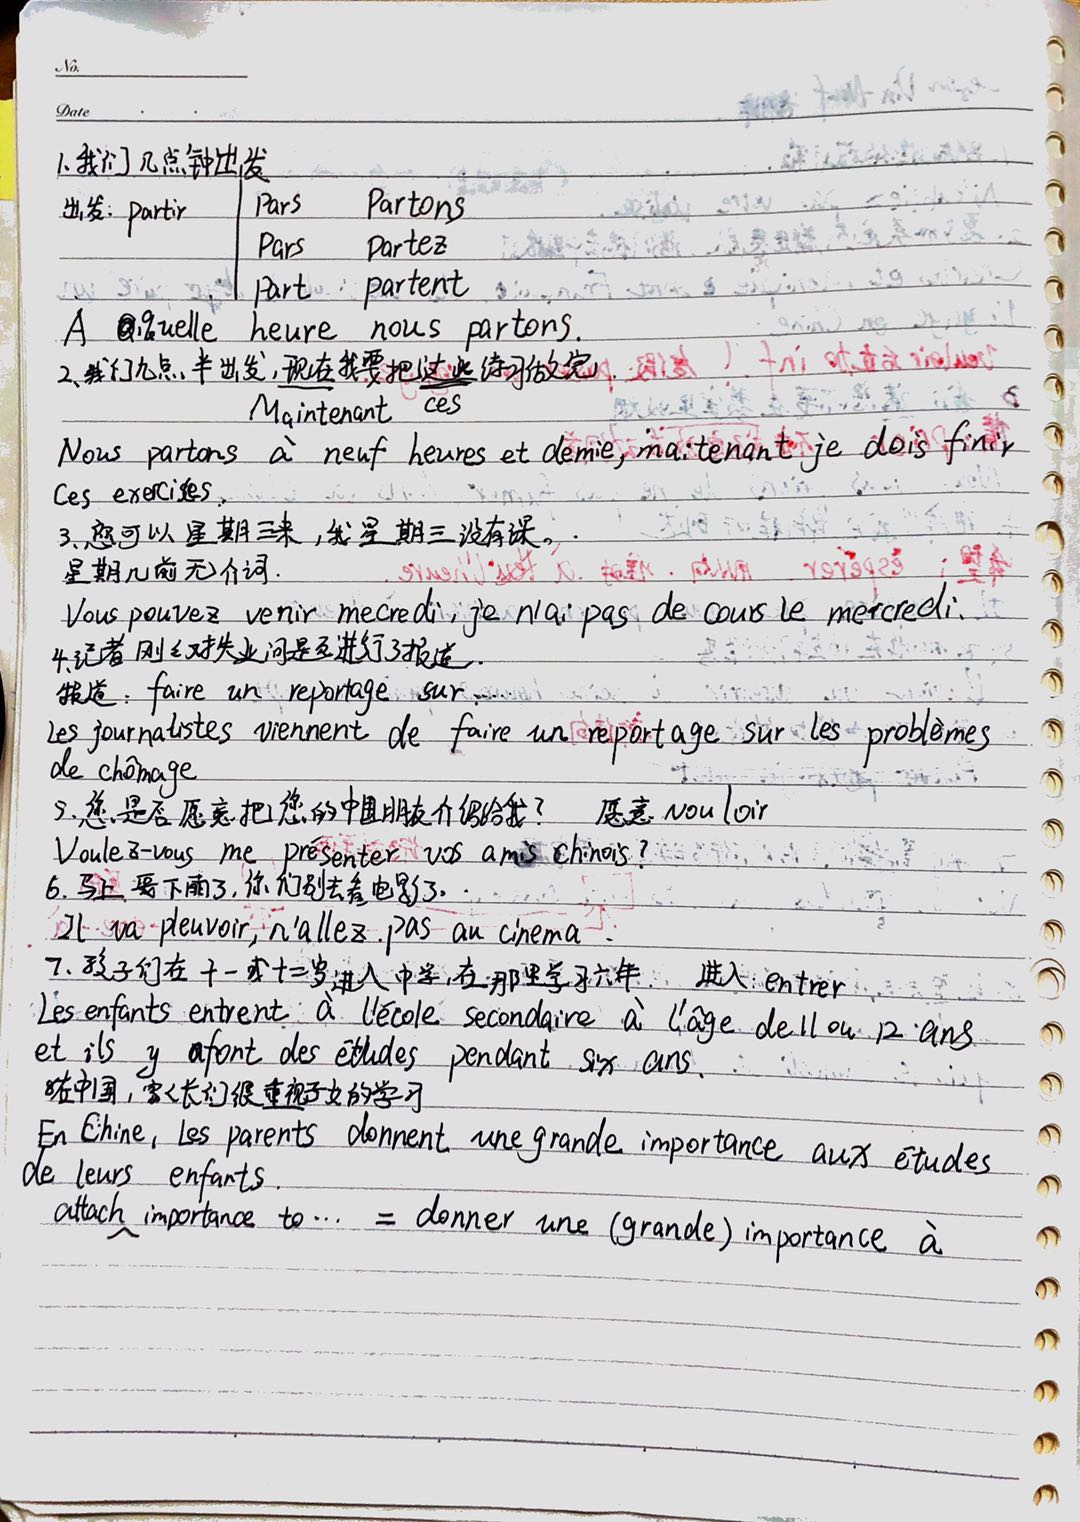 No.
Date
1.我们几点钟出发
出发: partir Pars Partons
Pars partez
Part partent
A quelle heure nous partons.
2.我们九点半出发,现在我要把这些练习做完
Maintenant ces
Nous partons à neuf heures et demie, maitenant je dois finir
ces exercises.
3.您可以星期三来,我星期三没有课。
星期几前无介词.
Vous pouvez venir mecredi, je n'ai pas de cours le mercredi.
4.记者刚刚对失业问题进行了报道.
报道: faire un reportage sur
Les journalistes viennent de faire un reportage sur les problèmes
de chômage
5.您是否愿意把您的中国朋友介绍给我? 愿意 vouloir
Voulez-vous me présenter vos amis chinois?
6.马上要下雨了,你们别去看电影了.
Il va pleuvoir, n'allez pas au cinema.
7.孩子们在十一或十二岁进入中学,在那里学习六年. 进入: entrer
Les enfants entrent à l'école secondaire à l'âge de 11 ou 12 ans
et ils y font des études pendant six ans.
8在中国,家长们很重视子女的学习
En Chine, les parents donnent une grande importance aux études
de leurs enfants.
attach importance to... = donner une (grande) importance à